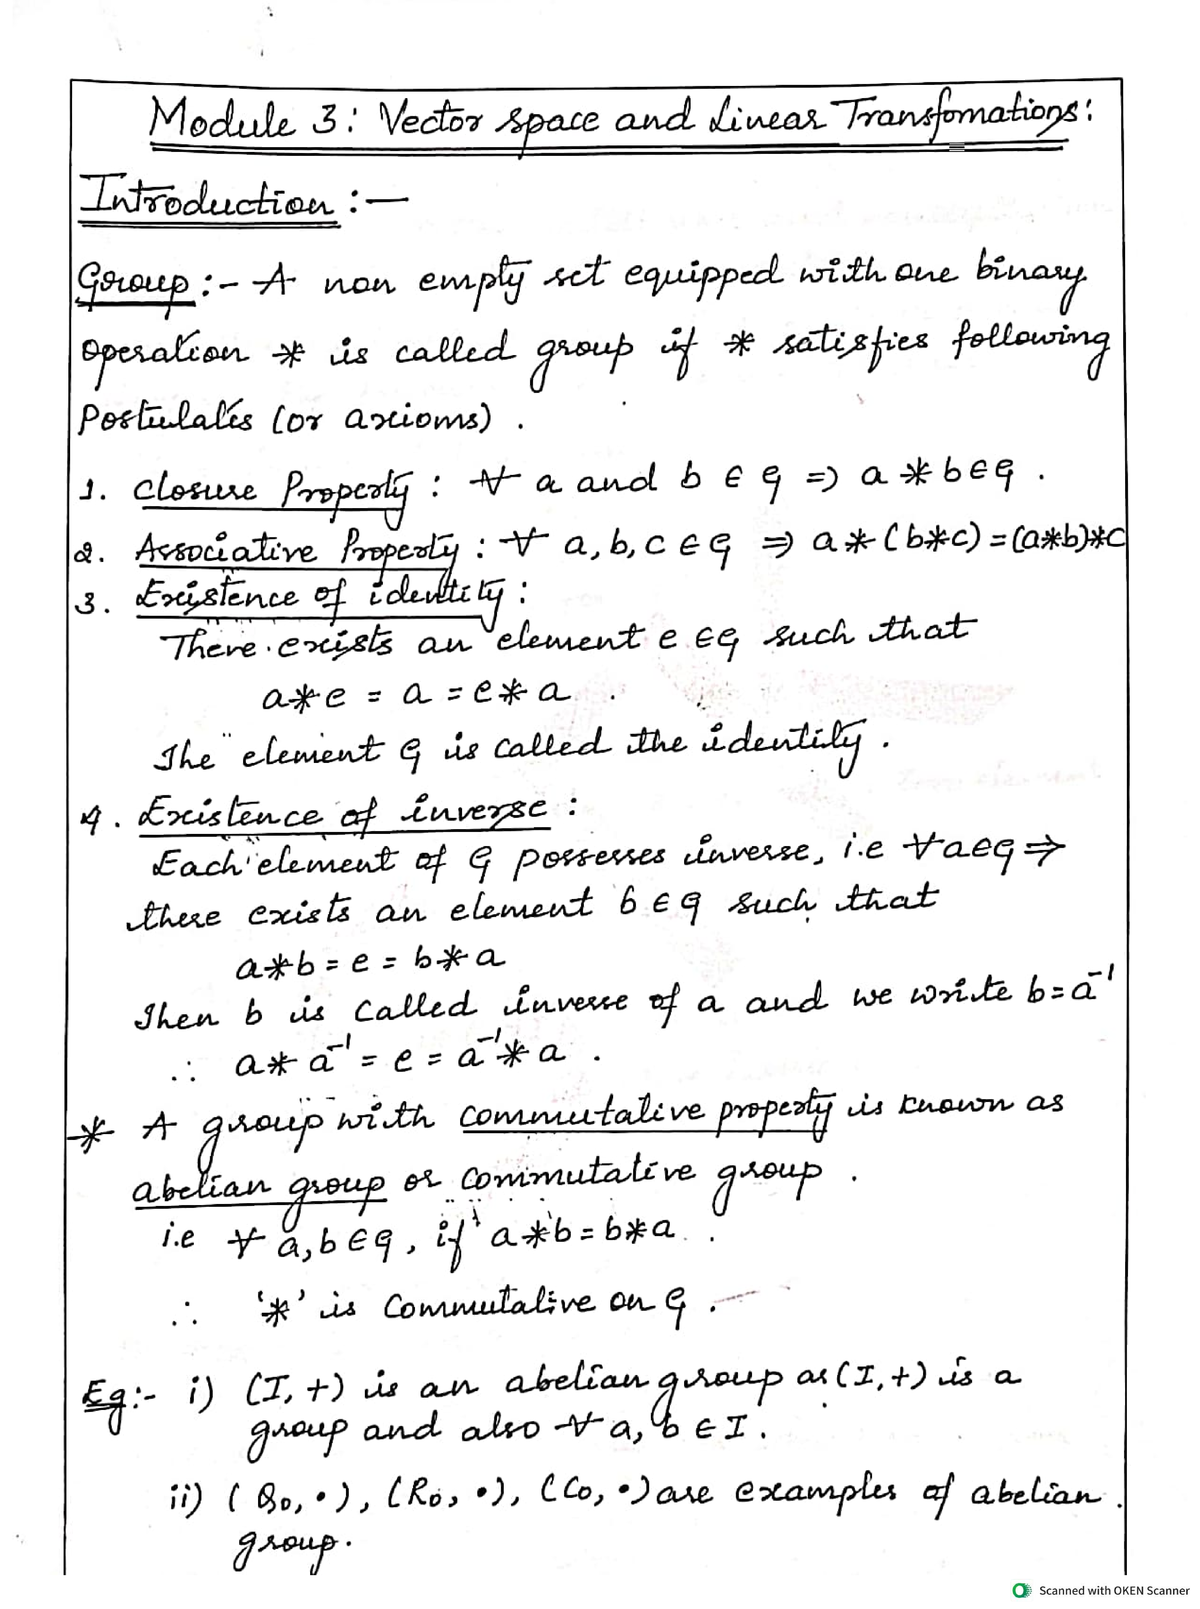 Module 3: Vector space and Linear Transfomations:
Introduction :-
Group :- A non empty set equipped with one binary
operation * is called group if * satisfies following
Postulates (or axioms).
1. Closure Property : ∀ a and b ∈ G ⇒ a * b ∈ G.
2. Associative Property : ∀ a, b, c ∈ G ⇒ a * (b*c) = (a*b)*c
3. Existence of identity :
There exists an element e ∈ G such that
a * e = a = e * a.
The element G is called the identity.
4. Existence of inverse :
Each element of G possesses inverse, i.e ∀ a ∈ G ⇒
there exists an element b ∈ G such that
a * b = e = b * a
Then b is called inverse of a and we write b = a⁻¹
∴ a * a⁻¹ = e = a⁻¹ * a.
* A group with commutative property is known as
abelian group or commutative group.
i.e ∀ a, b ∈ G, if a * b = b * a.
∴ '*' is commutative on G.
Eg:- i) (I, +) is an abelian group as (I, +) is a
group and also ∀ a, b ∈ I.
ii) (Q₀, •), (R₀, •), (C₀, •) are examples of abelian
group.
Scanned with OKEN Scanner